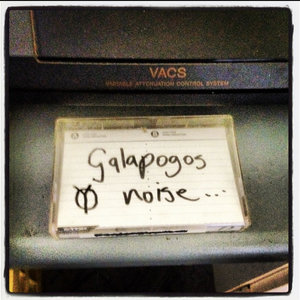 VACS
VARIABLE ATTENUATION CONTROL SYSTEM
A
B
Galapogos
noise...